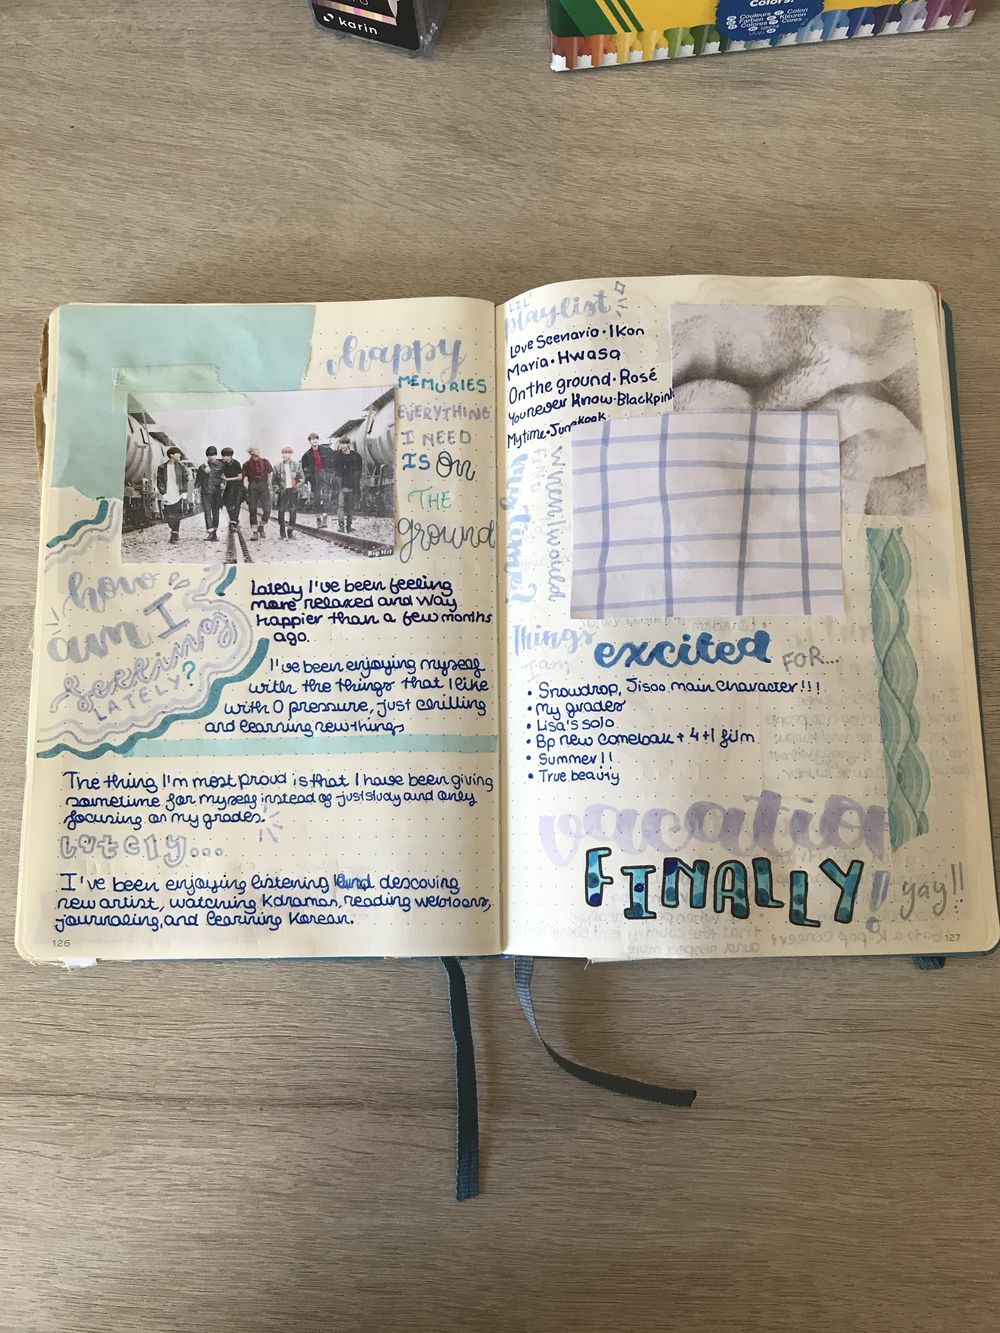 karin
Colors!
Couleurs / Colori
Farben / Kleuren
Colores / Cores
happy
MEMORIES
EVERYTHING
I NEED
IS On
THE
ground
Big Hit
how
am I
feeling
LATELY?
Lately I've been feeling
more relaxed and way
happier than a few months
ago.
I've been enjoying myself
with the things that I like
with 0 pressure, just chilling
and learning new things
The thing I'm most proud is that I have been giving
sometime for myself instead of just study and only
focusing on my grades.
lately...
I've been enjoying listening and descoving
new artist, watching Kdramas, reading webtoons,
journaling, and learning Korean.
126
LIL'
playlist
Love Scenario · Ikon
Maria · Hwasa
On the ground · Rosé
You never Know · Blackpink
My time · Jungkook
When I would
FIND
my time?
Things
I am excited FOR...
• Snowdrop, Jisoo main character!!!
• My grades
• Lisa's solo
• Bp new comeback + 4+1 film
• Summer!!
• True beauty
vacation
FINALLY! yay!!
127